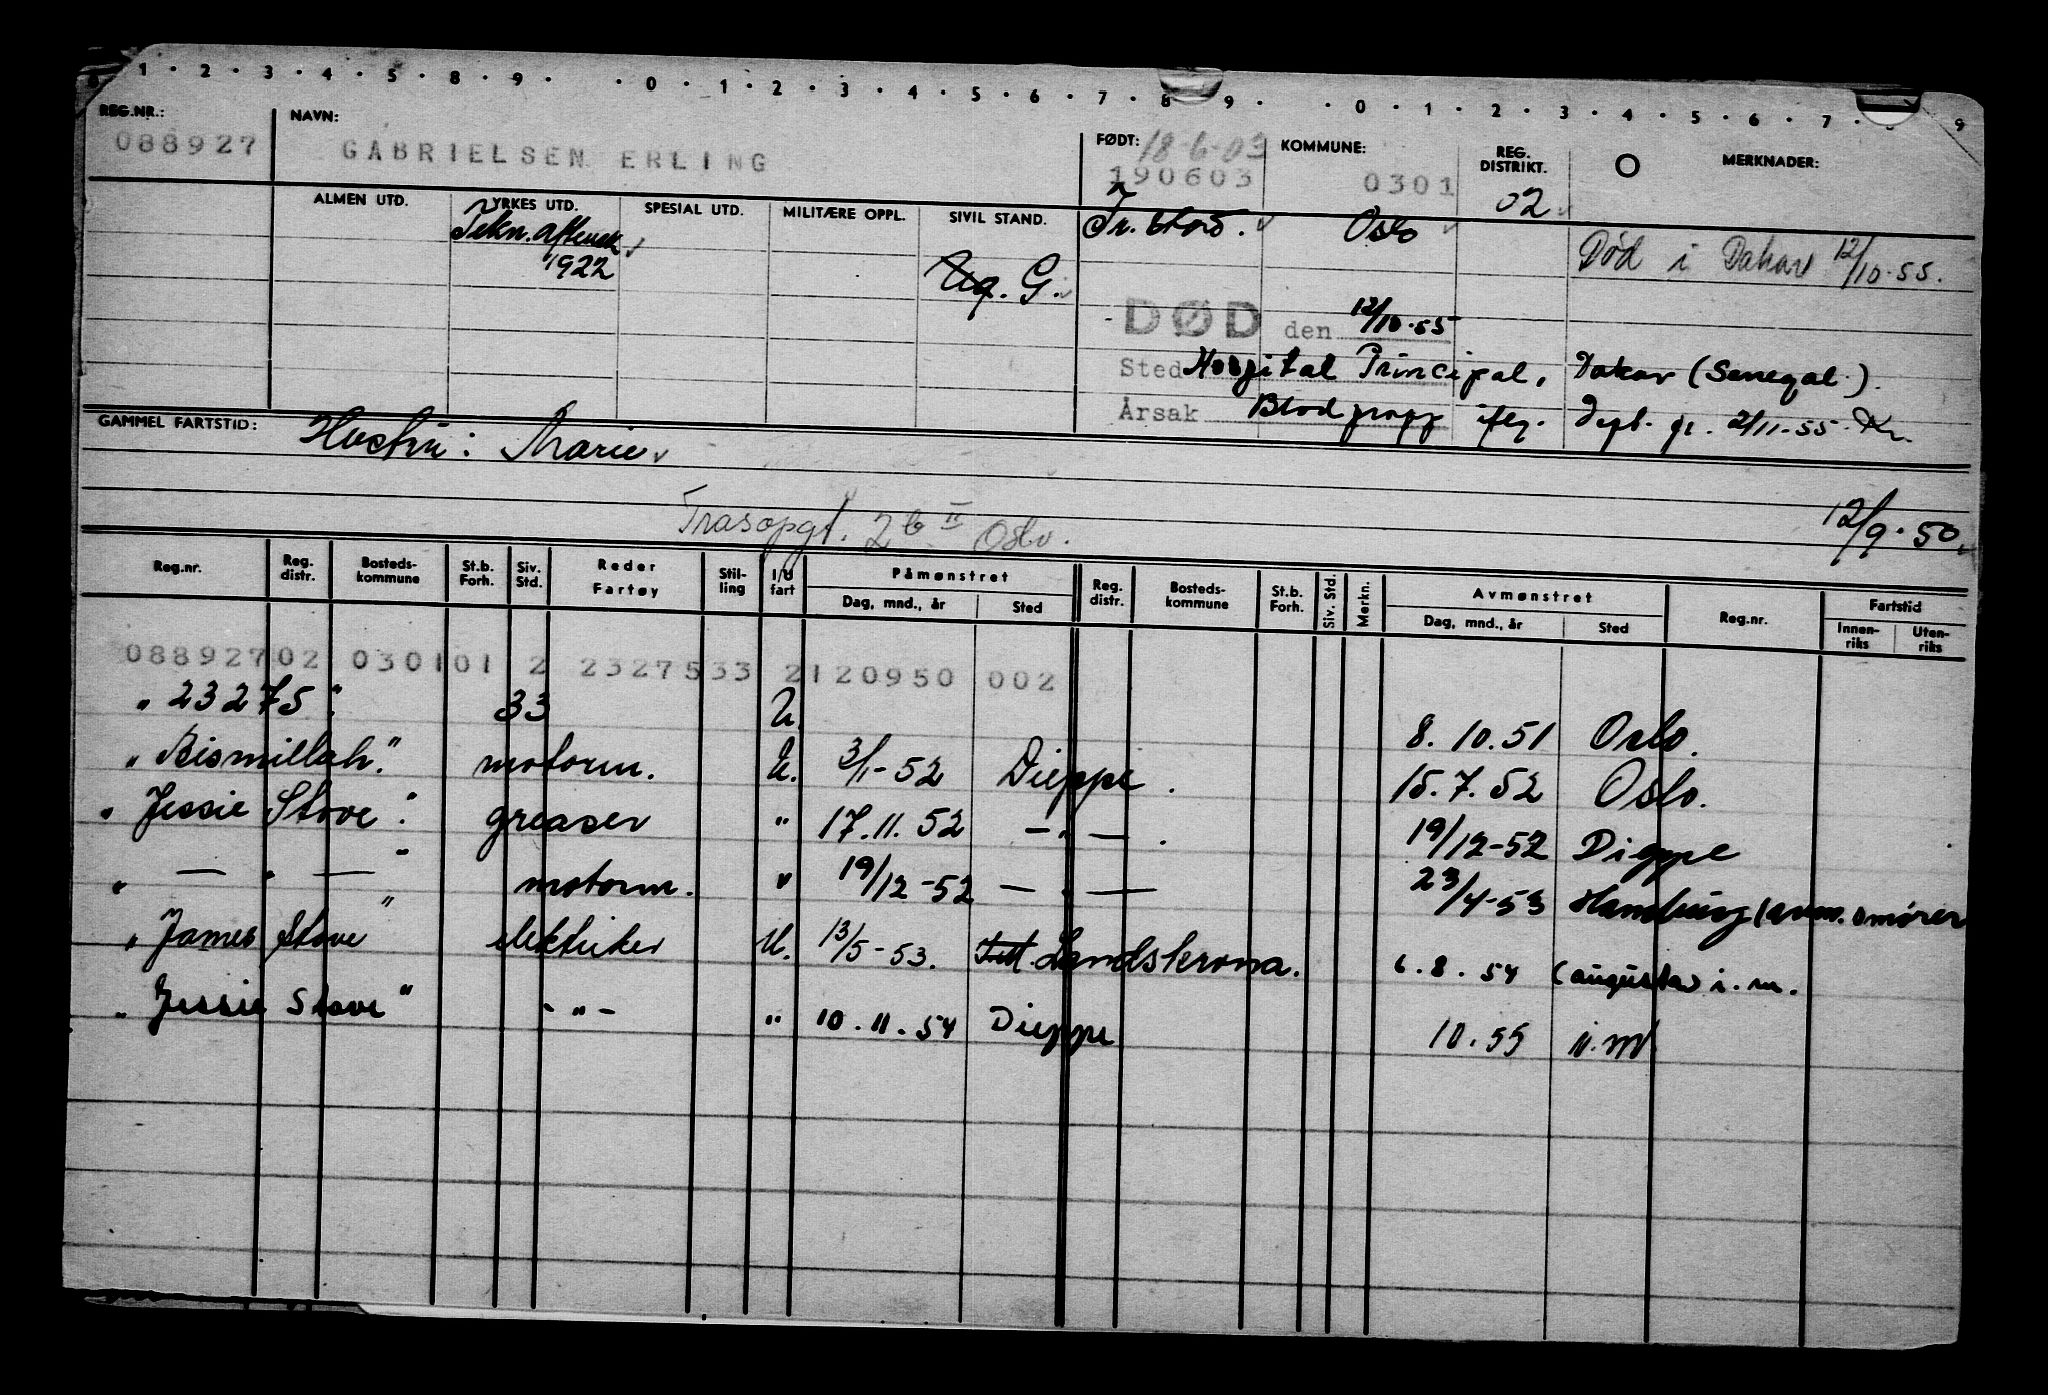 1 · 2 · 3 · 4 · 5 · 8 · 9 · · 0 · 1 · 2 · 3 · 4 · 5 · 6 · 7 · 8 · 9 · · 0 · 1 · 2 · 3 · 4 · 5 · 6 · 7 · 9
REG.NR.: NAVN: FØDT: 18-6-03 KOMMUNE: REG. DISTRIKT. MERKNADER:
088927 GABRIELSEN ERLING 190603 0301 02
ALMEN UTD. YRKES UTD. SPESIAL UTD. MILITÆRE OPPL. SIVIL STAND.
Tekn. aftensk. Fr.stad. Oslo Død i Dakar 12/10-55.
1922 Ug. G.
DØD den 12/10-55
Sted Hospital Principal, Dakar (Senegal).
Årsak Blodpropp iflg. Dept. gr. 2/11-55. Kr.
GAMMEL FARTSTID: Hustru: Marie
12/9-50
Trasopgt. 2b II Oslo.
Reg.nr. Reg. distr. Bosteds- kommune St.b. Forh. Siv. Std. Reder Fartøy Stil- ling I/U fart Påmønstret Dag, mnd., år Sted Reg. distr. Bosteds- kommune St.b. Forh. Siv. Std. Merkn. Avmønstret Dag, mnd., år Sted Reg.nr. Fartstid Innen- riks Uten- riks
08892702 030101 2 2327533 2120950 002
" 23275 " 33 U. 8.10.51 Oslo.
" Bismillah." motorm. U. 3/1-52 Dieppe. 15.7.52 Oslo.
" Jessie Stove " greaser " 17.11.52 — " — . 19/12-52 Dieppe
" — " — " motorm. " 19/12-52 — " — 23/4-53 Hamburg (avm. smører
" James Stove " elektriker U. 13/5-53. Landskrona. 6.8.54 (augusta) i.m.
" Jessie Stove " - " - " 10.11.54 Dieppe 10.55 i.m